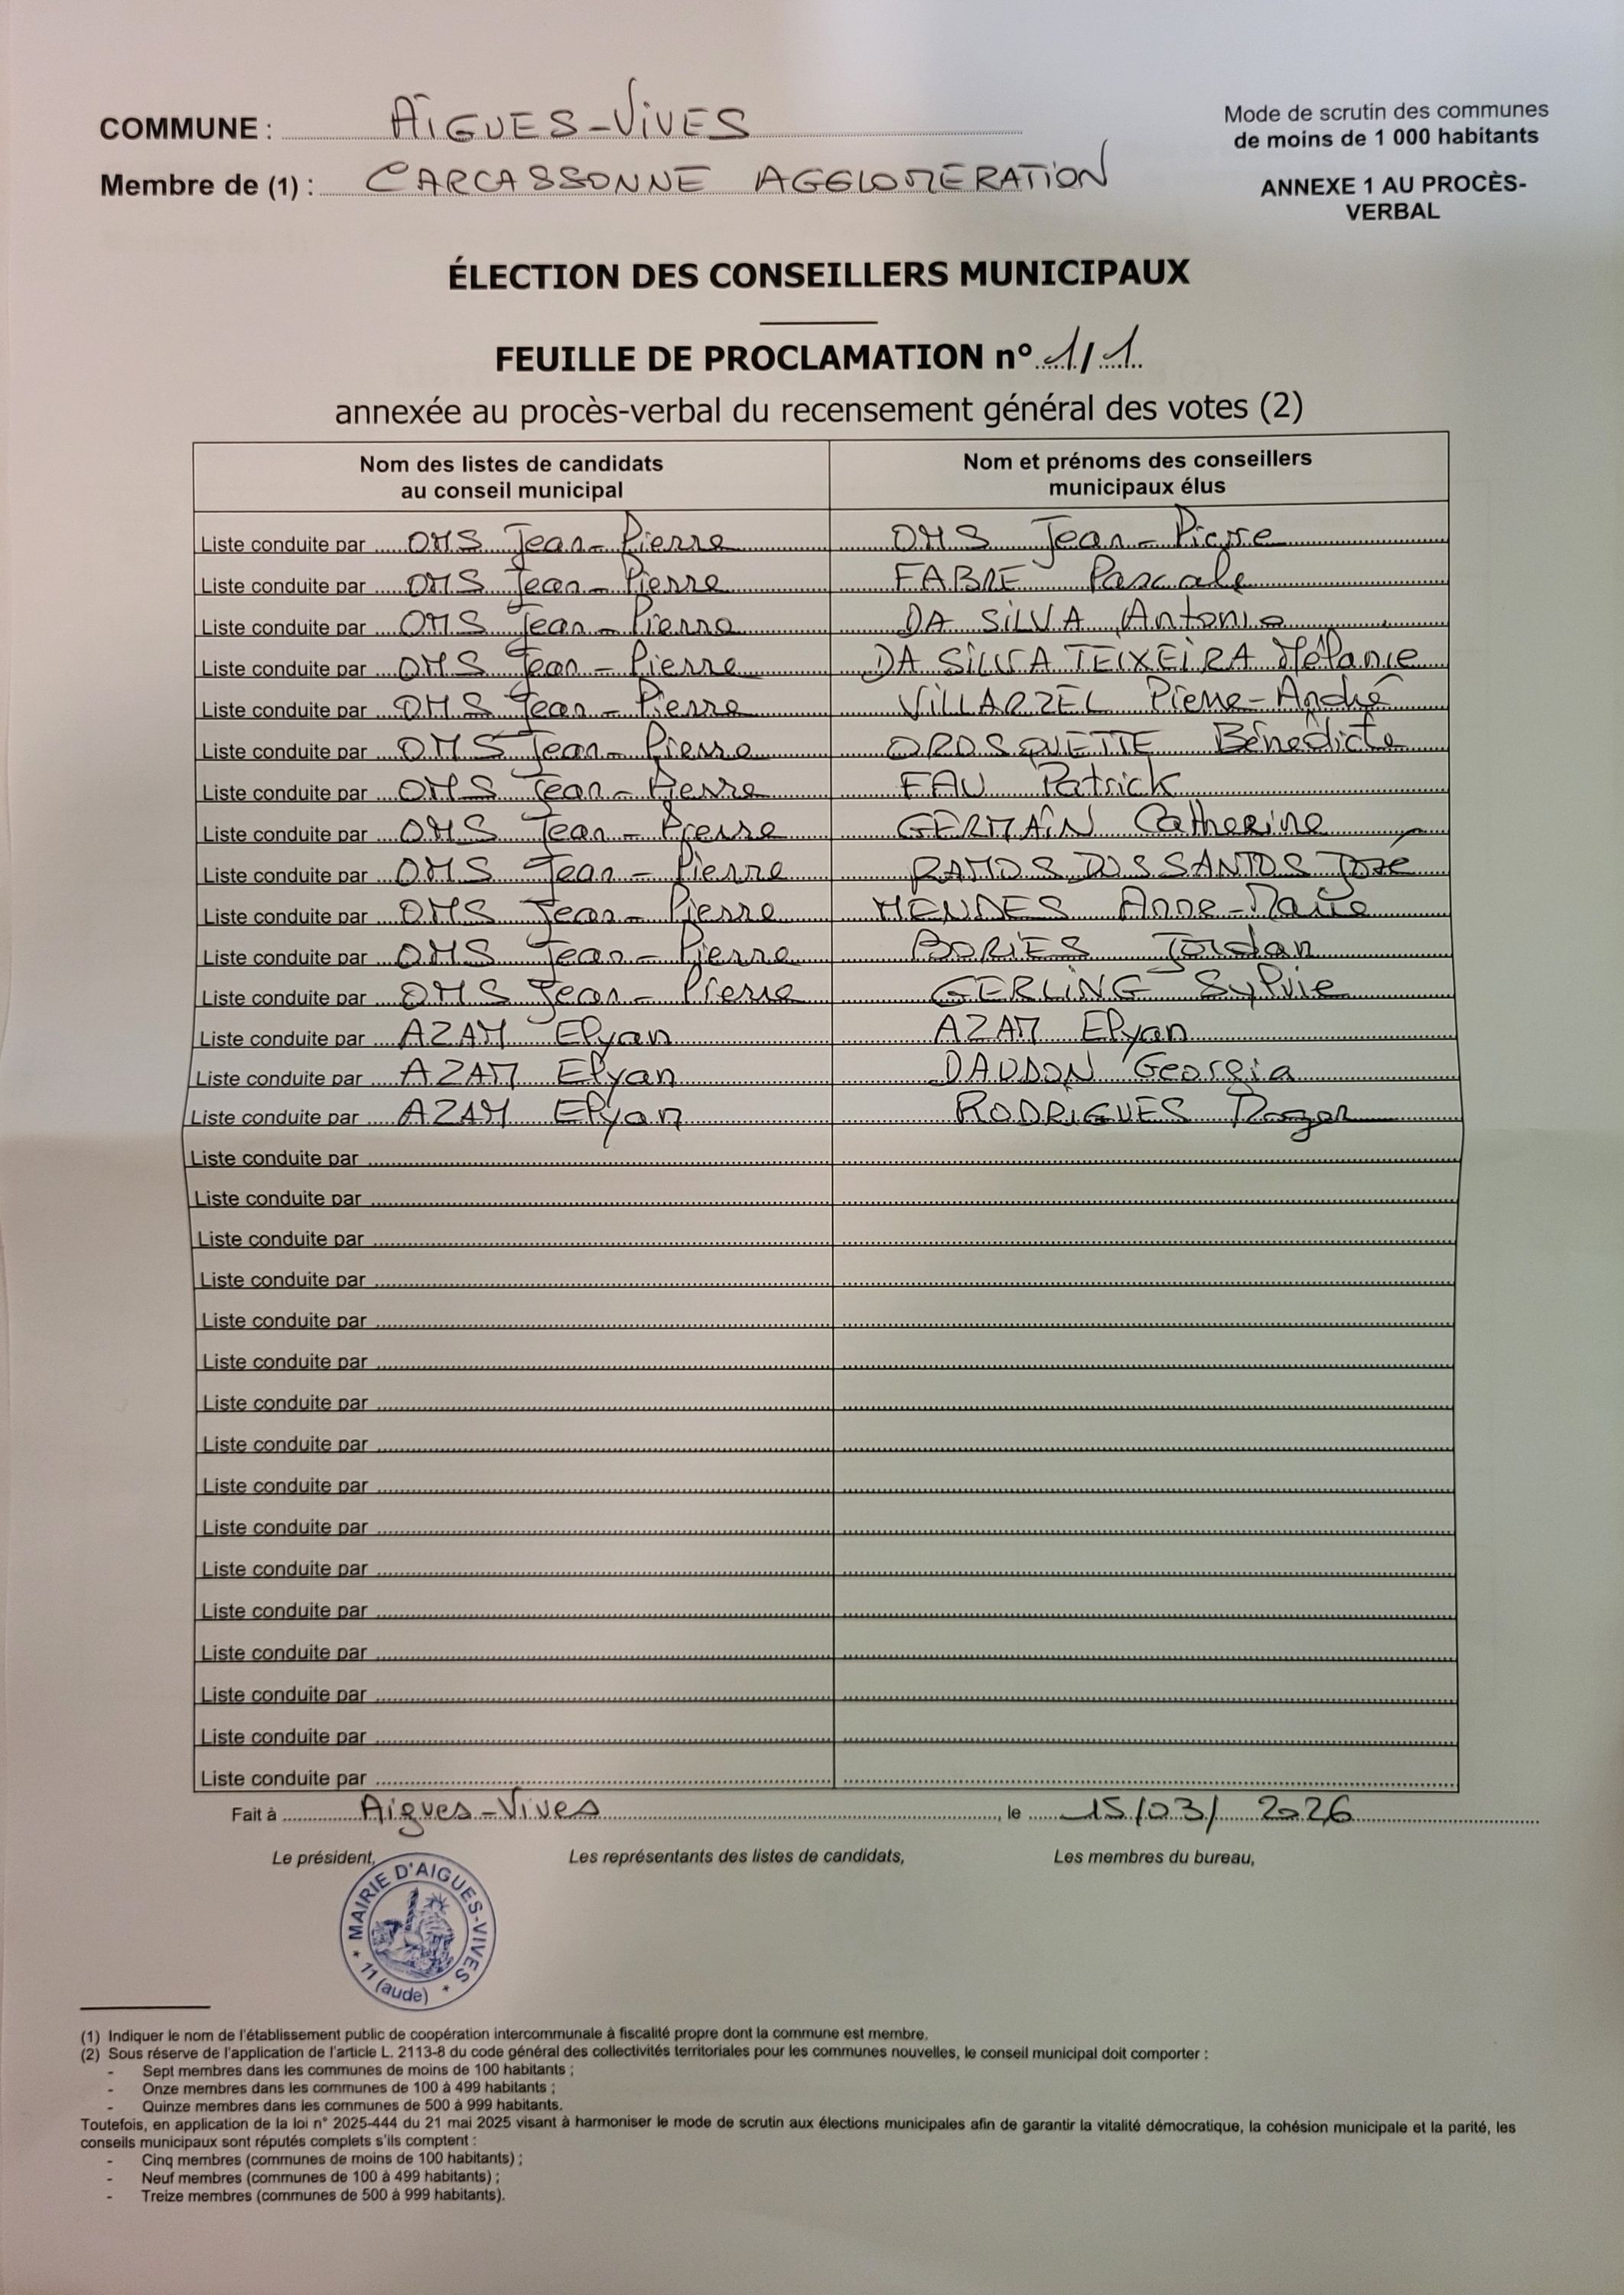 COMMUNE : AIGUES-VIVES
Membre de (1) : CARCASSONNE AGGLOMERATION
Mode de scrutin des communes
de moins de 1 000 habitants
ANNEXE 1 AU PROCÈS-
VERBAL
ÉLECTION DES CONSEILLERS MUNICIPAUX
FEUILLE DE PROCLAMATION n° 1/1
annexée au procès-verbal du recensement général des votes (2)
Nom des listes de candidats
au conseil municipal
Nom et prénoms des conseillers
municipaux élus
Liste conduite par OMS Jean-Pierre OMS Jean-Pierre
Liste conduite par OMS Jean-Pierre FABRE Pascale
Liste conduite par OMS Jean-Pierre DA SILVA Antonio
Liste conduite par OMS Jean-Pierre DA SILVA TEIXEIRA Mélanie
Liste conduite par OMS Jean-Pierre VILLARZEL Pierre-André
Liste conduite par OMS Jean-Pierre OROSQUETTE Bénédicte
Liste conduite par OMS Jean-Pierre FAU Patrick
Liste conduite par OMS Jean-Pierre GERMAIN Catherine
Liste conduite par OMS Jean-Pierre RAMOS DOS SANTOS José
Liste conduite par OMS Jean-Pierre MENDES Anne-Marie
Liste conduite par OMS Jean-Pierre BORIES Jordan
Liste conduite par OMS Jean-Pierre GERLING Sylvie
Liste conduite par AZAM Elyan AZAM Elyan
Liste conduite par AZAM Elyan DAUDON Georgia
Liste conduite par AZAM Elyan RODRIGUES Roger
Liste conduite par
Liste conduite par
Liste conduite par
Liste conduite par
Liste conduite par
Liste conduite par
Liste conduite par
Liste conduite par
Liste conduite par
Liste conduite par
Liste conduite par
Liste conduite par
Liste conduite par
Liste conduite par
Liste conduite par
Liste conduite par
Fait à Aigues-Vives, le 15/03/2026
Le président, Les représentants des listes de candidats, Les membres du bureau,
MAIRIE D'AIGUES-VIVES
* 11 (aude) *
(1) Indiquer le nom de l'établissement public de coopération intercommunale à fiscalité propre dont la commune est membre.
(2) Sous réserve de l'application de l'article L. 2113-8 du code général des collectivités territoriales pour les communes nouvelles, le conseil municipal doit comporter :
- Sept membres dans les communes de moins de 100 habitants ;
- Onze membres dans les communes de 100 à 499 habitants ;
- Quinze membres dans les communes de 500 à 999 habitants.
Toutefois, en application de la loi n° 2025-444 du 21 mai 2025 visant à harmoniser le mode de scrutin aux élections municipales afin de garantir la vitalité démocratique, la cohésion municipale et la parité, les
conseils municipaux sont réputés complets s'ils comptent :
- Cinq membres (communes de moins de 100 habitants) ;
- Neuf membres (communes de 100 à 499 habitants) ;
- Treize membres (communes de 500 à 999 habitants).